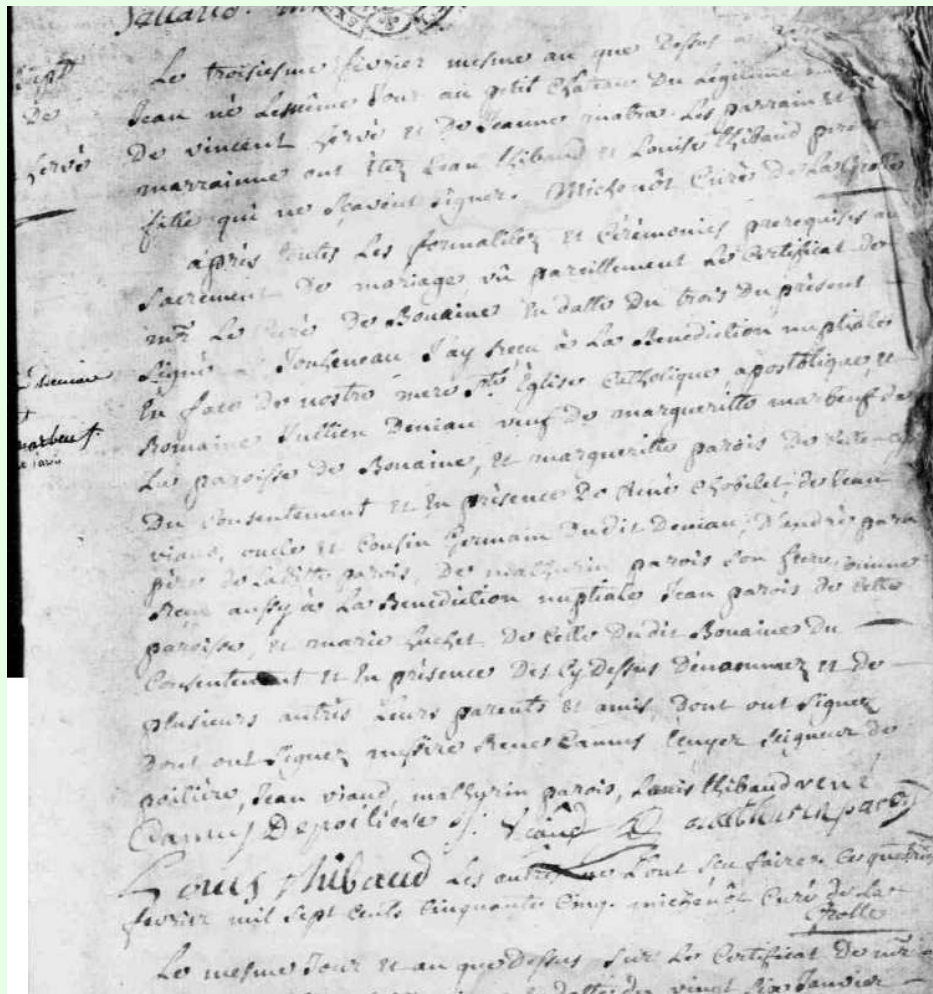 Le troisiesme fevrier mesme an que Dessus a
Jean né Le mesme Jour au petit Chateau Du Legitime
De vincent hervé et De Jeanne matra. Les parrain et
marrainne ont Etez Jean thibaud et Louise thibaud
fille qui ne sçavent signer. Michenôt Curé De La Grolle
Bapt
De
hervé
après toutes Les formalitez et Cérémonies prerequises au
Sacrement De mariage, vû pareillement Le Certificat de
mr Le Curé de Bouaine En datte Du trois Du présent
Signé Joulneau J'ay Receu à La Benediction nuptiale
En face De nostre mere Ste Eglise Catholique apostolique, et
Romaine Jullien Deniau veuf de margueritte marbeuf de
La paroisse de Bouaine, et margueritte parois De cette
Du Consentement et En présence De René Chobelet, de Jean
viaud, oncle et Cousin Germain Dudit Deniau, D'andré paroi
père de Laditte parois, De mathurin parois son frere, comme
Reçu aussy à La Benediction nuptiale Jean parois de Cette
paroisse, et marie huchet De Celle Dudit Bouaine Du
Consentement et En présence Des Cy Dessus Dénommez et de
plusieurs autres Leurs parents et amis, Dont ont Signez
Dont ont Signez messire Rene Camus Ecuyer Seigneur de
poiliere, Jean viaud, mathurin parois, Louis thibaud
Deniau
marbeuf
Camus Depoiliere J: Viaud mathurin parois
Louis thibaud Les autres ne L'ont Sçu faire. Ce quatre
fevrier mil Sept Cents Cinquante Cinq. michenôt Curé De La
Grolle
Le mesme Jour et an que Dessus Sur Le Certificat De mr
datte du vingt Six Janvier